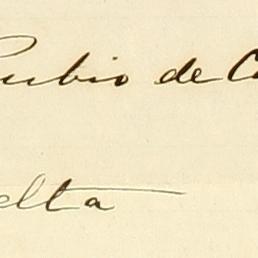 Rubio de C
elta